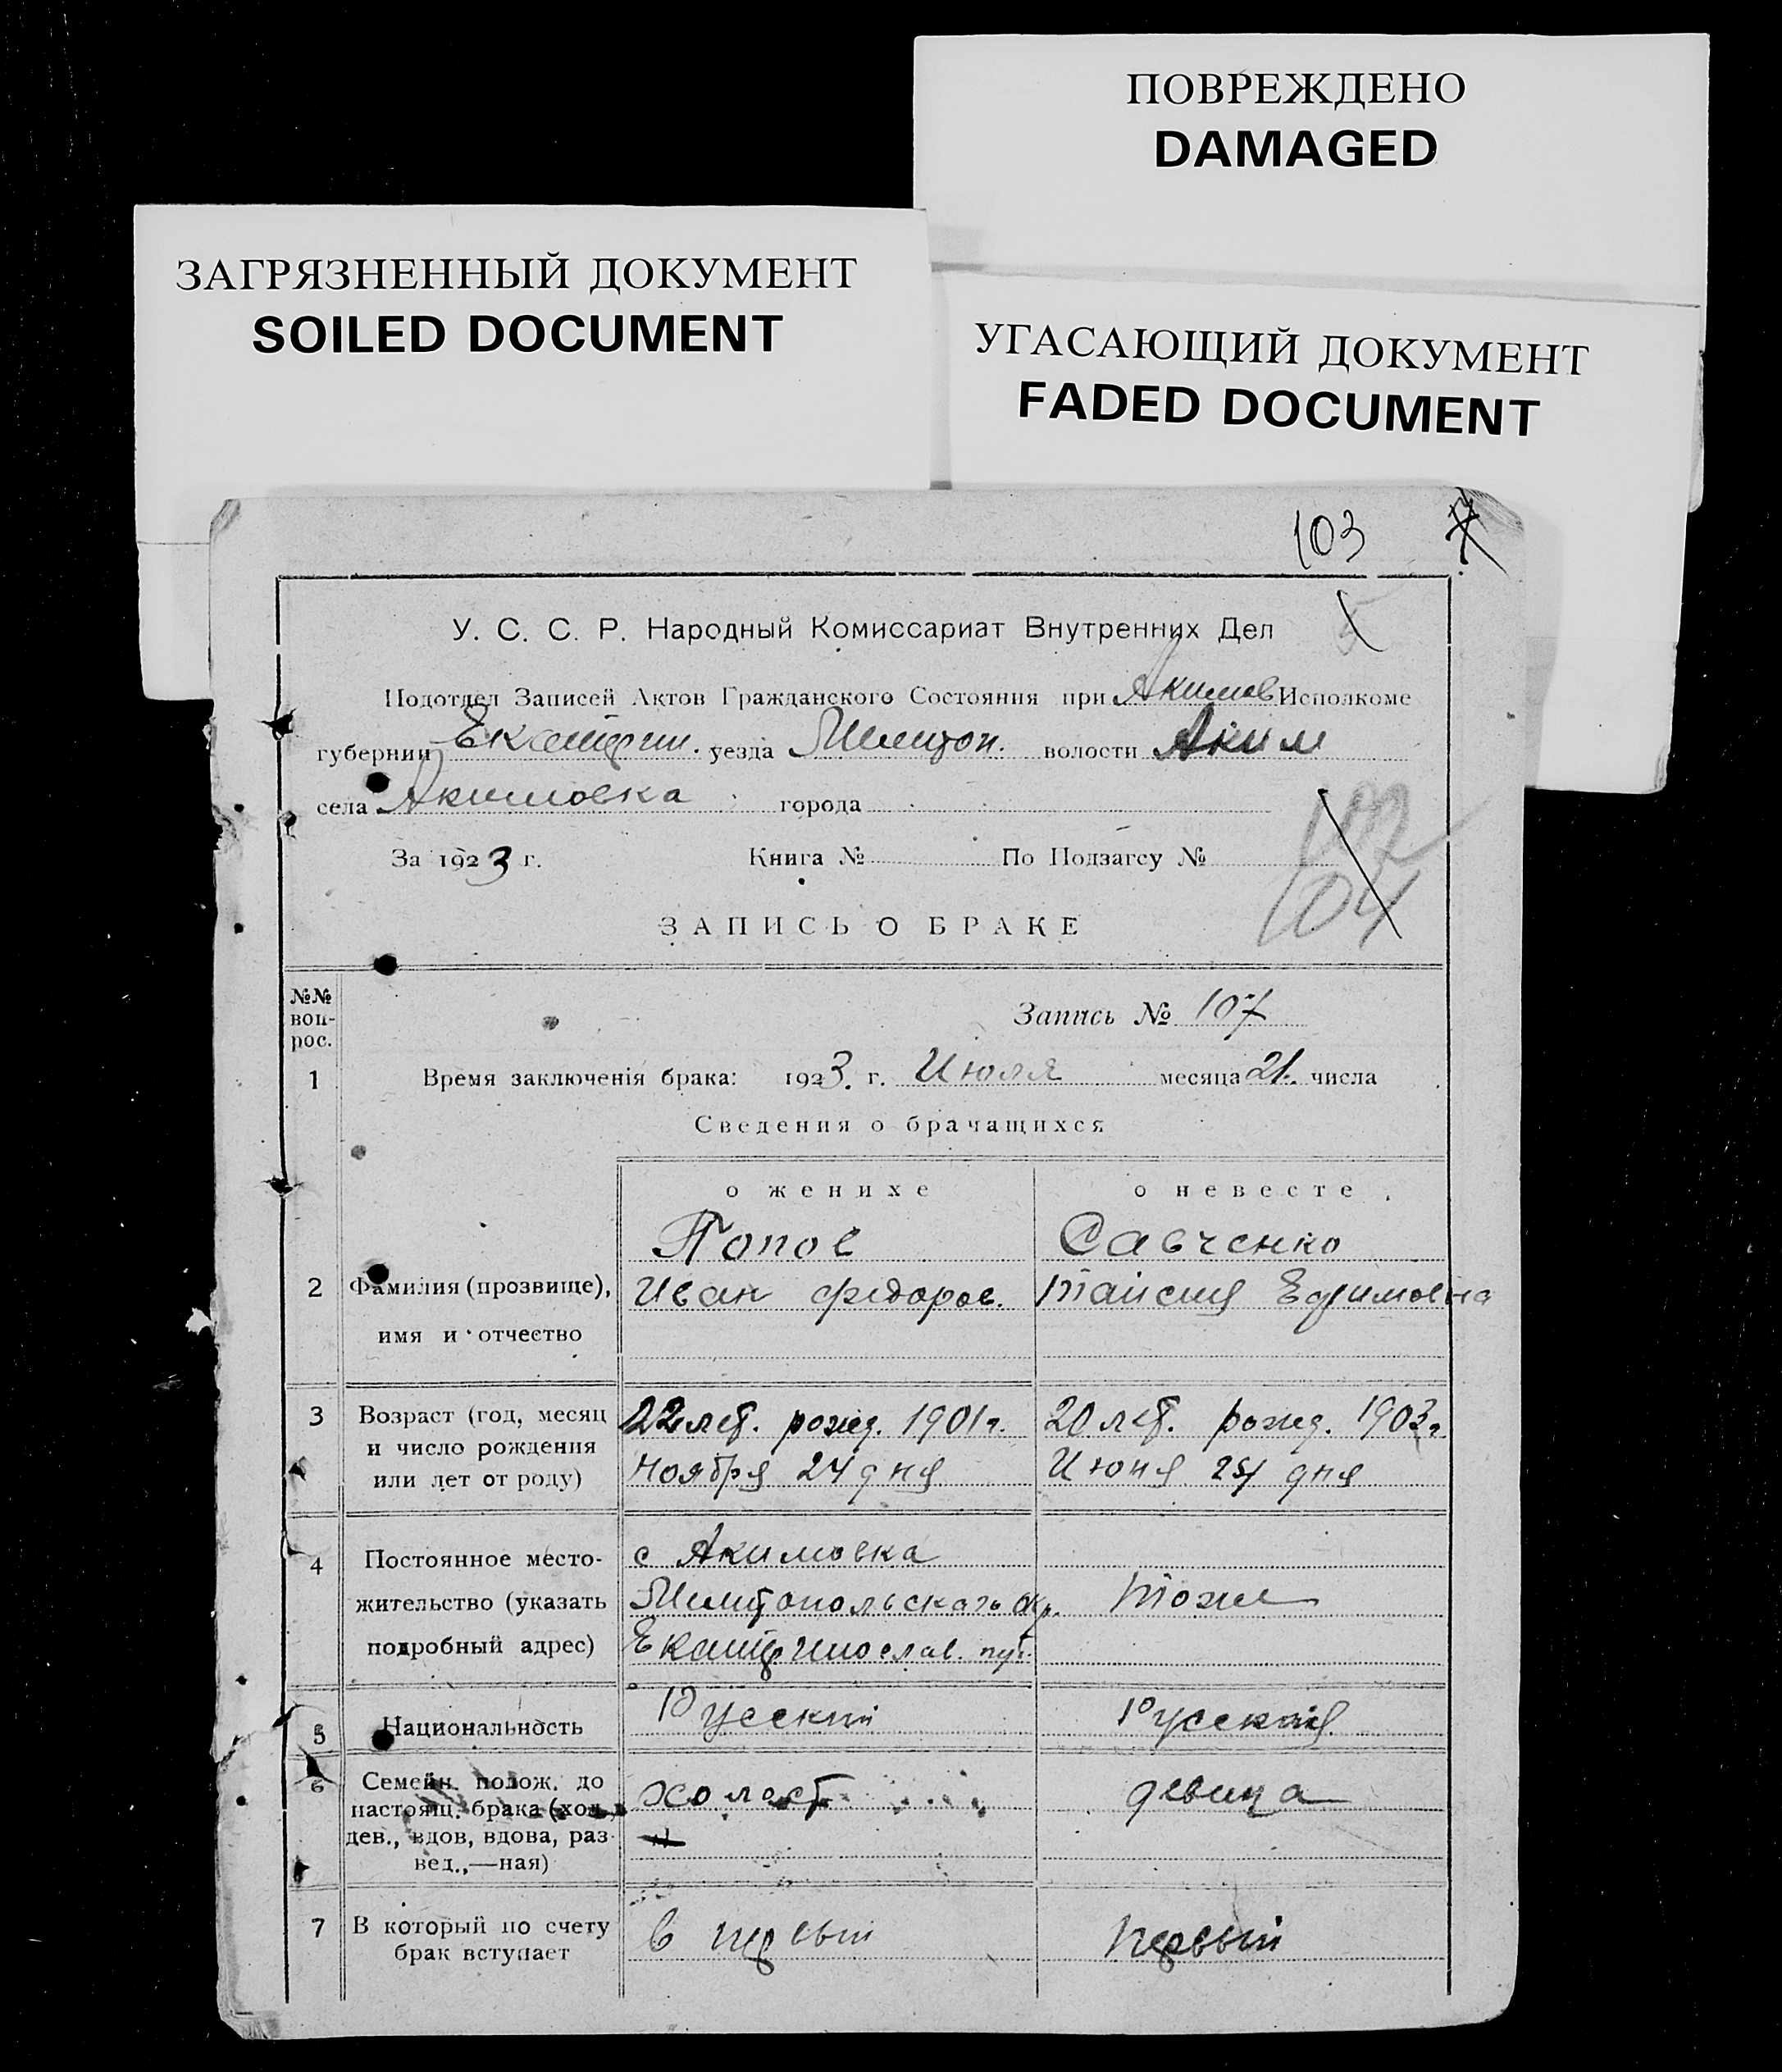 ПОВРЕЖДЕНО
DAMAGED
ЗАГРЯЗНЕННЫЙ ДОКУМЕНТ
SOILED DOCUMENT
УГАСАЮЩИЙ ДОКУМЕНТ
FADED DOCUMENT
103
У. С. С. Р. Народный Комиссариат Внутренних Дел
Подотдел Записей Актов Гражданского Состояния при Акимов Исполкоме
губернии Екатерин. уезда Мелитоп. волости Аким
села Акимовка города
107
За 1923 г. Книга № По Подзагсу №
104
ЗАПИСЬ О БРАКЕ
№№ воп-рос.
Запись № 107
1 Время заключенія брака: 1923. г. Июля месяца 21. числа
Сведения о брачащихся
о женихе о невесте
Попов Савченко
2 Фамилия (прозвище), Иван Федоров. Таисия Ефимовна
имя и отчество
3 Возраст (год, месяц 22 лет. рожд. 1901 г. 20 лет. рожд. 1903 г.
и число рождения
или лет от роду) Ноября 24 дня Июня дня
4 Постоянное место- с Акимовка
жительство (указать Мелитопольского окр. тоже
подробный адрес) Екатеринослав. губ.
5 Национальность Русский Русская
6 Семейн. полож. до
настоящ. брака (хол., холост девица
дев., вдов, вдова, раз-
вед.,—ная)
7 В который по счету в первый первый
брак вступает